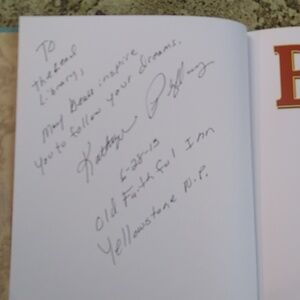 To
the
Library,
May Bears inspire
you to follow your dreams.
6-28-13
Old Faithful Inn
Yellowstone N.P.